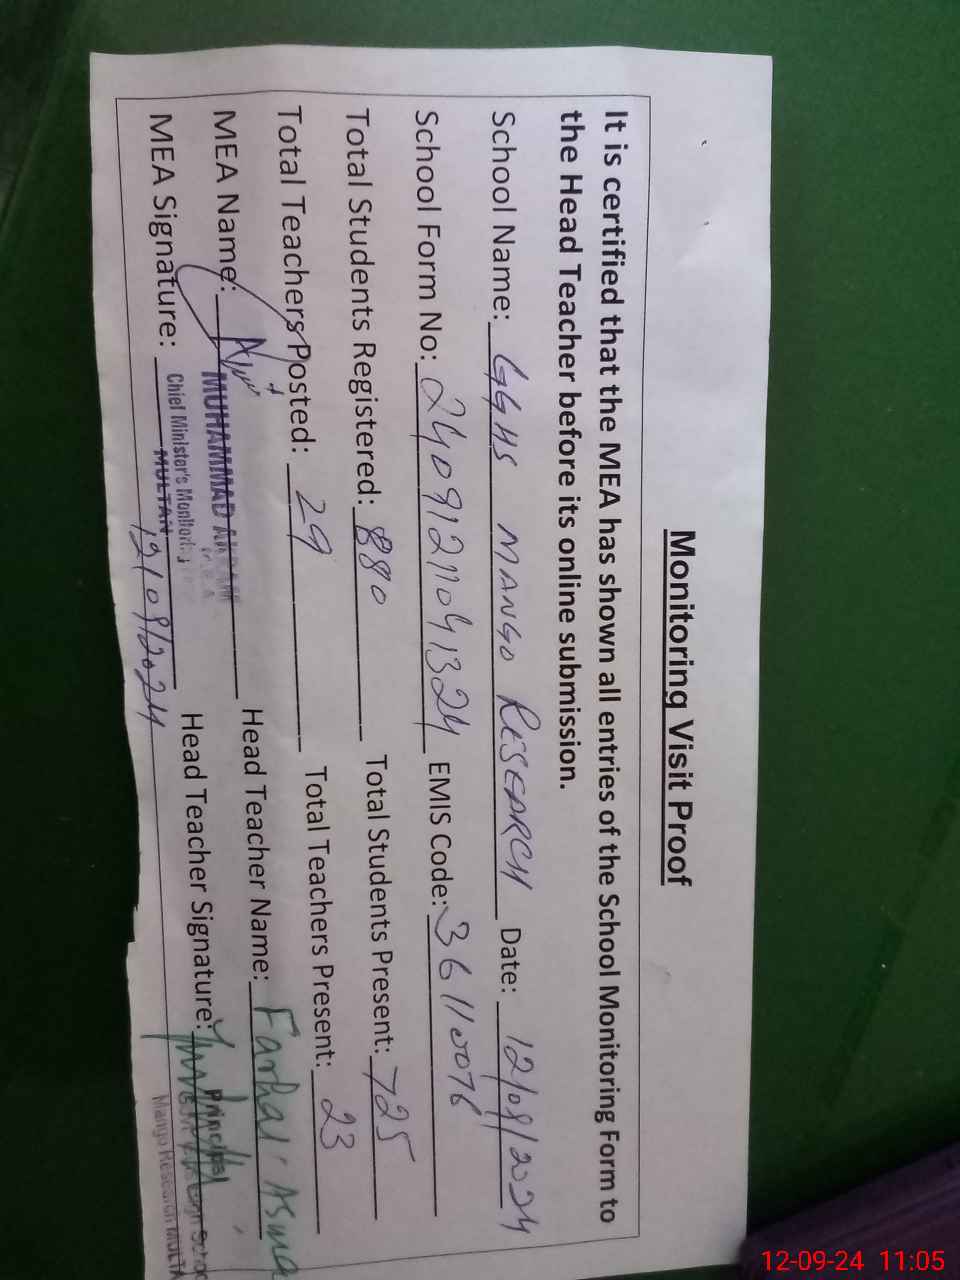 Monitoring Visit Proof
It is certified that the MEA has shown all entries of the School Monitoring Form to
the Head Teacher before its online submission.
School Name: GGHS MANGO RESEARCH Date: 12/09/2024
School Form No: 24091211041324 EMIS Code: 36110076
Total Students Registered: 880 Total Students Present: 725
Total Teachers Posted: 29 Total Teachers Present: 23
MEA Name: Head Teacher Name: Farhat Asma
MUHAMMAD AKRAM
MEA Signature: Head Teacher Signature:
Chief Minister's
MULTAN
12/09/2024
Principal
Mango Research
12-09-24 11:05